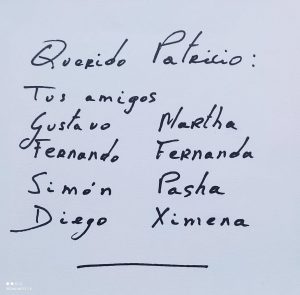 Querido Patricio:
Tus amigos
Gustavo Martha
Fernando Fernanda
Simón Pasha
Diego Ximena